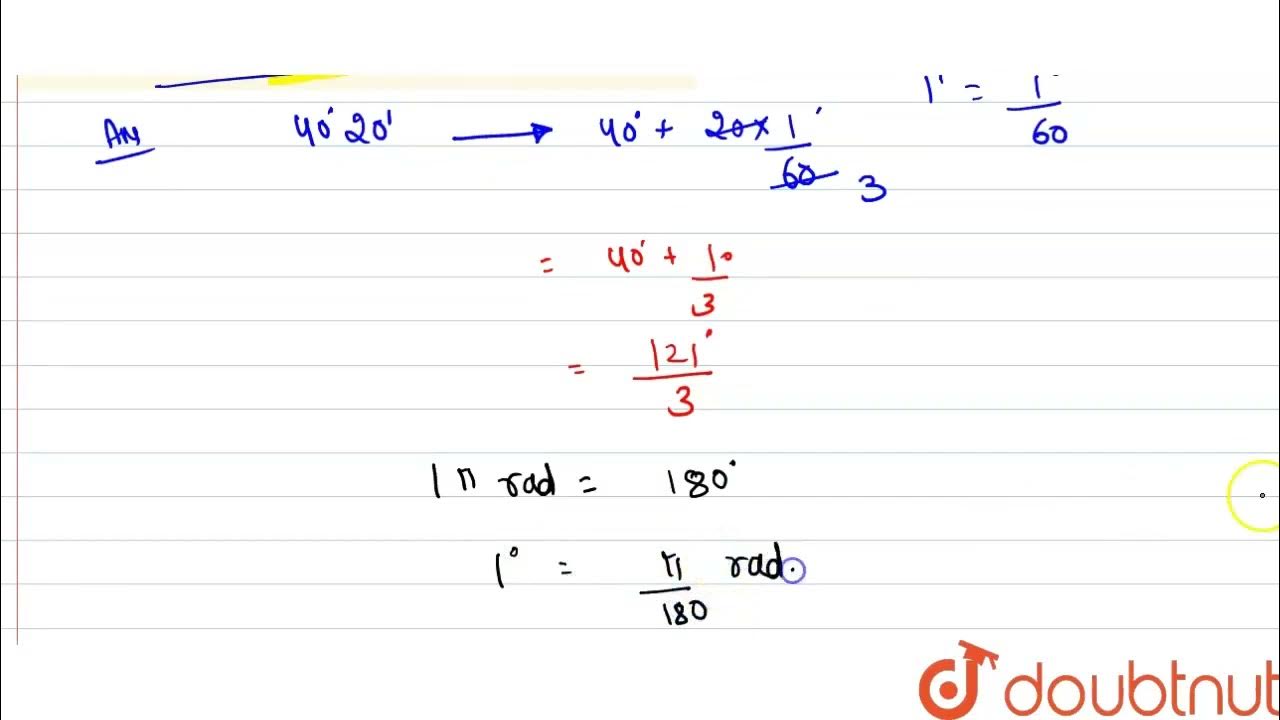 1' = 1°/60
Ans 40° 20' → 40° + 20 × 1°/60 3
= 40° + 1°/3
= 121°/3
1 π rad = 180°
1° = π/180 rad.
doubtnut